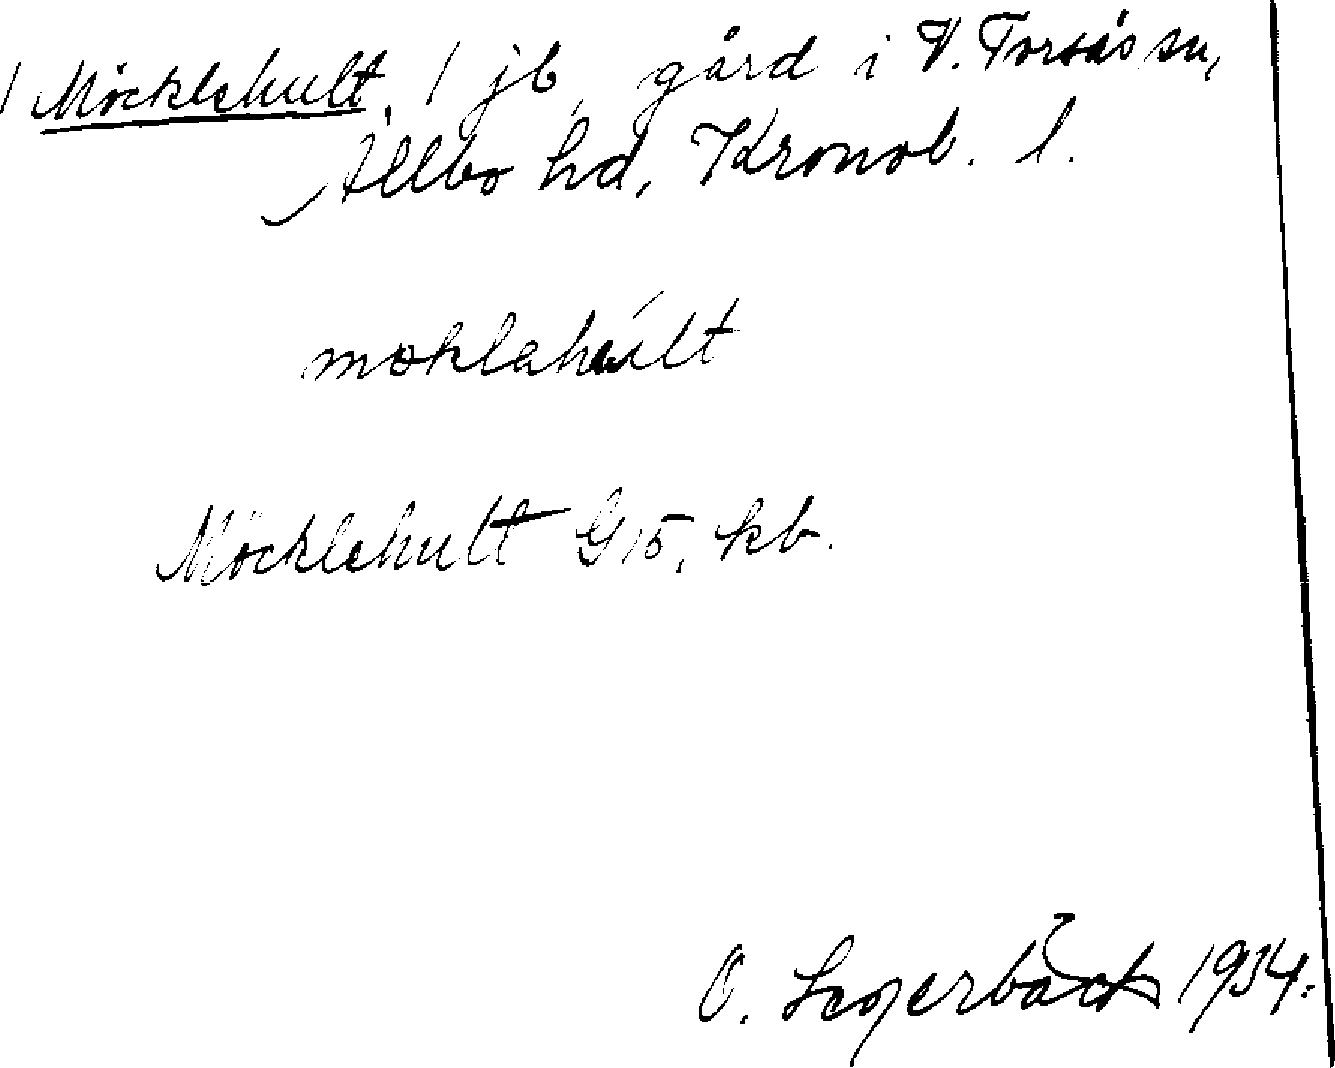 / Möcklehult, / jb, gård i V. Torsås sn,
Allbo hd, Kronob. l.
möklahult
Möcklehult G 15, kb.
O. Segerbäck 1934.